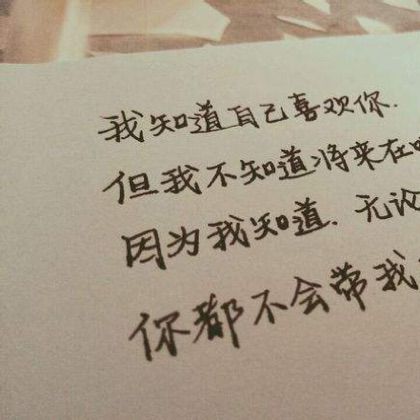 我知道自己喜欢你.
但我不知道将来在
因为我知道.无论
你都不会带我